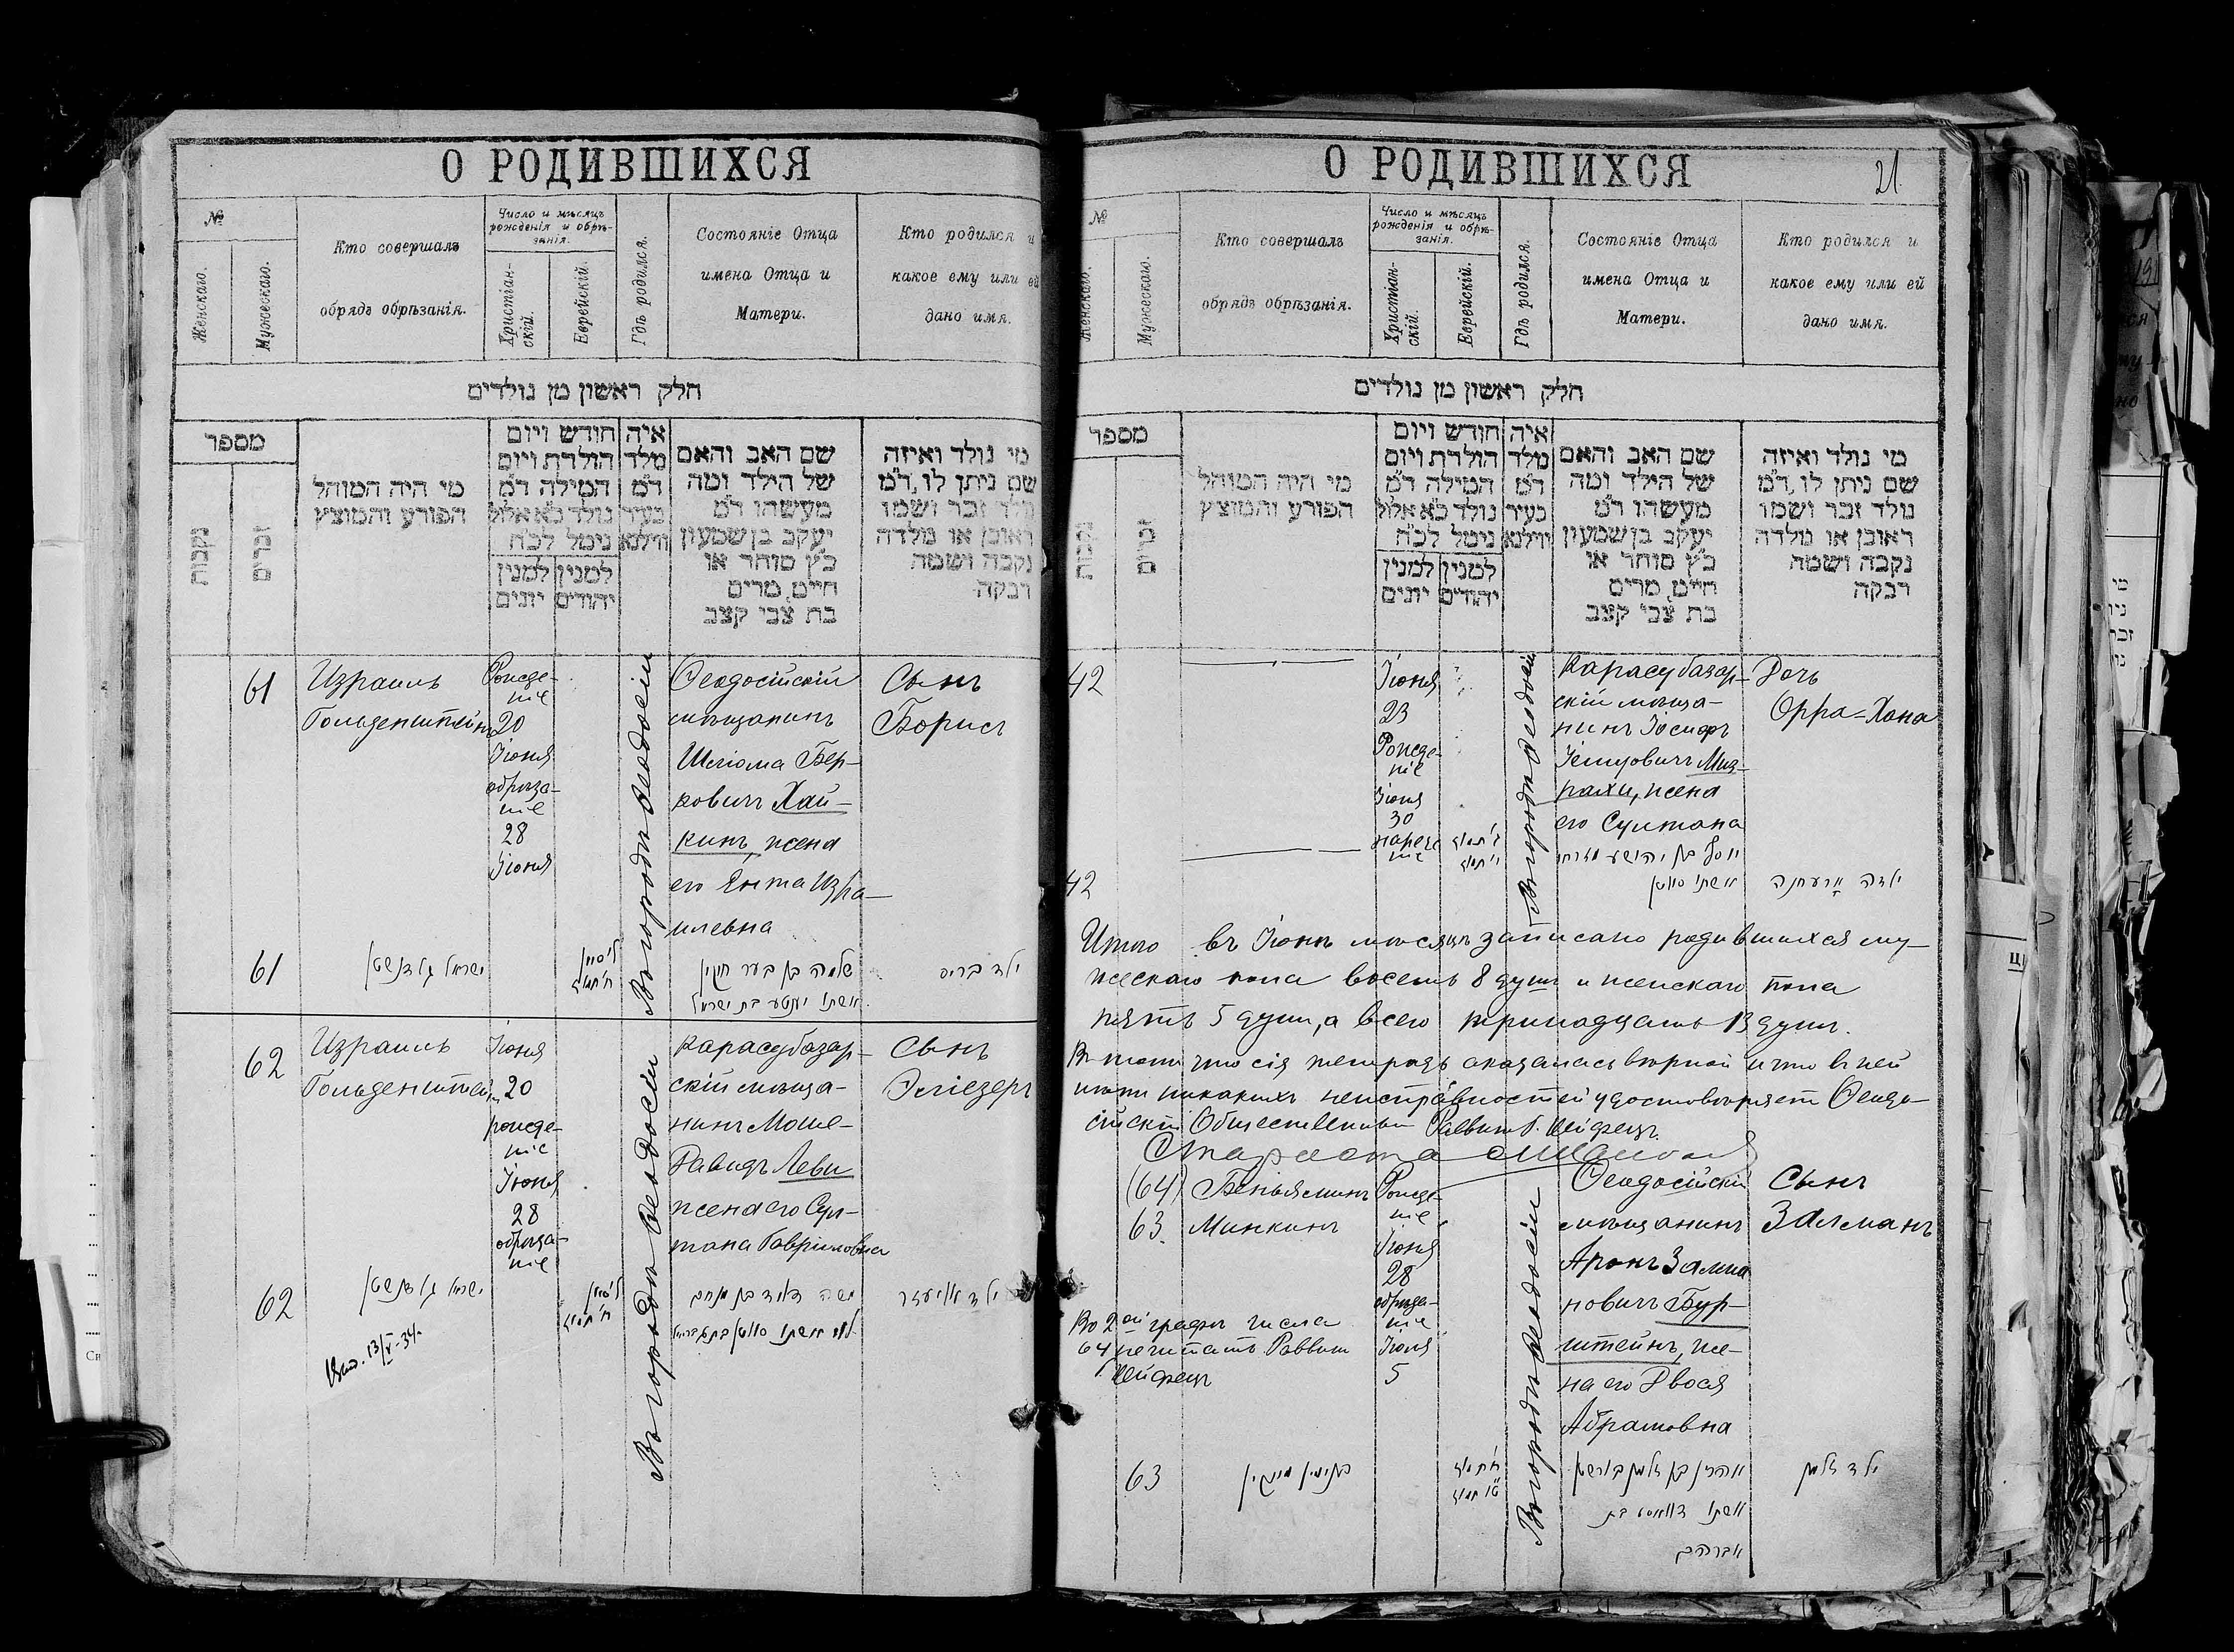 О РОДИВШИХСЯ
№
Женскаго.
Мужескаго.
Кто совершалъ
обрядъ обрѣзанія.
Число и мѣсяцъ
рожденія и обрѣ-
занія.
Христіан-
скій.
Еврейскій.
Гдѣ родился.
Состояніе Отца
имена Отца и
Матери.
Кто родился и
какое ему или ей
дано имя.
חלק ראשון מן נולדים
מספר
נקבות
זכרים
מי היה המוהל
הפורע והמוצץ
חודש ויום
הולדת ויום
המילה ד״מ
נולד כ״א אלול
נימל לכ״ח
למנין
יהודים
למנין
יונים
איה
מלד
ד״מ
בעיר
ווילנא
שם האב והאם
של הילד ומה
מעשהו ד״מ
יעקב בן שמעון
כ״ץ סוחר או
חיים, מרים
בת צבי קצב
מי נולד ואיזה
שם ניתן לו, ד״מ
נולד זכר ושמו
ראובן או נולדה
נקבה ושמה
רבקה
61
Израиль
Гольденштейнъ
Рожде-
ніе
20
Іюня
обрѣза-
ніе
28
Іюня
Въ городѣ Ѳеодосіи
Ѳеодосійскій
мѣщанинъ
Шліома Бер-
ковичъ Хай-
кинъ, жена
его Ента Изра-
илевна
Сынъ
Борисъ
61
ישראל גולדנשטיין
ל׳ סיון
ח׳ תמוז
שלמה בן בער חייקין
אשתו יענטע בת ישראל
ילד בריס
62
Израиль
Гольденштейнъ
Іюня
20
рожде-
ніе
Іюня
28
обрѣза-
ніе
Въ городѣ Ѳеодосіи
Карасубазар-
скій мѣща-
нинъ Моше-
Давидъ Леви
жена его Сул-
тана Гавриловна
Сынъ
Эліезеръ
62
ישראל גולדנשטיין
ל׳ סיון
ח׳ תמוז
משה דוד בן מנחם
ילד אליעזר
13/V-34.
О РОДИВШИХСЯ
21.
№
Женскаго.
Мужескаго.
Кто совершалъ
обрядъ обрѣзанія.
Число и мѣсяцъ
рожденія и обрѣ-
занія.
Христіан-
скій.
Еврейскій.
Гдѣ родился.
Состояніе Отца
имена Отца и
Матери.
Кто родился и
какое ему или ей
дано имя.
חלק ראשון מן נולדים
מספר
נקבות
זכרים
מי היה המוהל
הפורע והמוצץ
חודש ויום
הולדת ויום
המילה ד״מ
נולד כ״א אלול
נימל לכ״ח
למנין
יהודים
למנין
יונים
איה
מלד
ד״מ
בעיר
ווילנא
שם האב והאם
של הילד ומה
מעשהו ד״מ
יעקב בן שמעון
כ״ץ סוחר או
חיים, מרים
בת צבי קצב
מי נולד ואיזה
שם ניתן לו, ד״מ
נולד זכר ושמו
ראובן או נולדה
נקבה ושמה
רבקה
42
Іюня
23
Рожде-
ніе
Іюня
30
нарече
ніе
Въ городѣ Ѳеодосіи
Карасубазар-
скій мѣща-
нинъ Іосифъ
Іешуовичъ Миз-
рахи, жена
его Султана
Дочь
Орра-Хана
42
יוסף בן יהושע מזרחי
אשתו סולטן
ילדה אורע חנה
Итого въ Іюнѣ мѣсяцѣ записано родившихся му-
жескаго пола восемь 8 душъ и женскаго пола
пять 5 душъ, а всего тринадцать 13 душъ.
Въ томъ что сія тетрадь оказалась вѣрной и что въ ней
нѣтъ никакихъ неисправностей удостовѣряетъ Ѳеодо-
сійскій Общественный Раввинъ Б. Шейфецъ
Староста
(64)
63.
Беньяминъ
Минкинъ
Рожде-
ніе
Іюня
28
обрѣза-
ніе
Іюля
5
Въ городѣ Ѳеодосіи
Ѳеодосійскій
мѣщанинъ
Аронъ Залма
новичъ Бур-
штейнъ, же-
на его Двося
Абрамовна
Сынъ
Залманъ
Во 2ой графѣ числа
64 не читать Раввинъ
Шейфецъ
63
בנימין מינקין
ח׳ תמוז
ט״ו תמוז
אהרן בן זלמן בורשטיין
אשתו דוואסע בת
אברהם
ילד זלמן